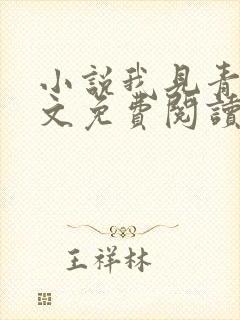 小說我見青
文免費閱讀
王祥林